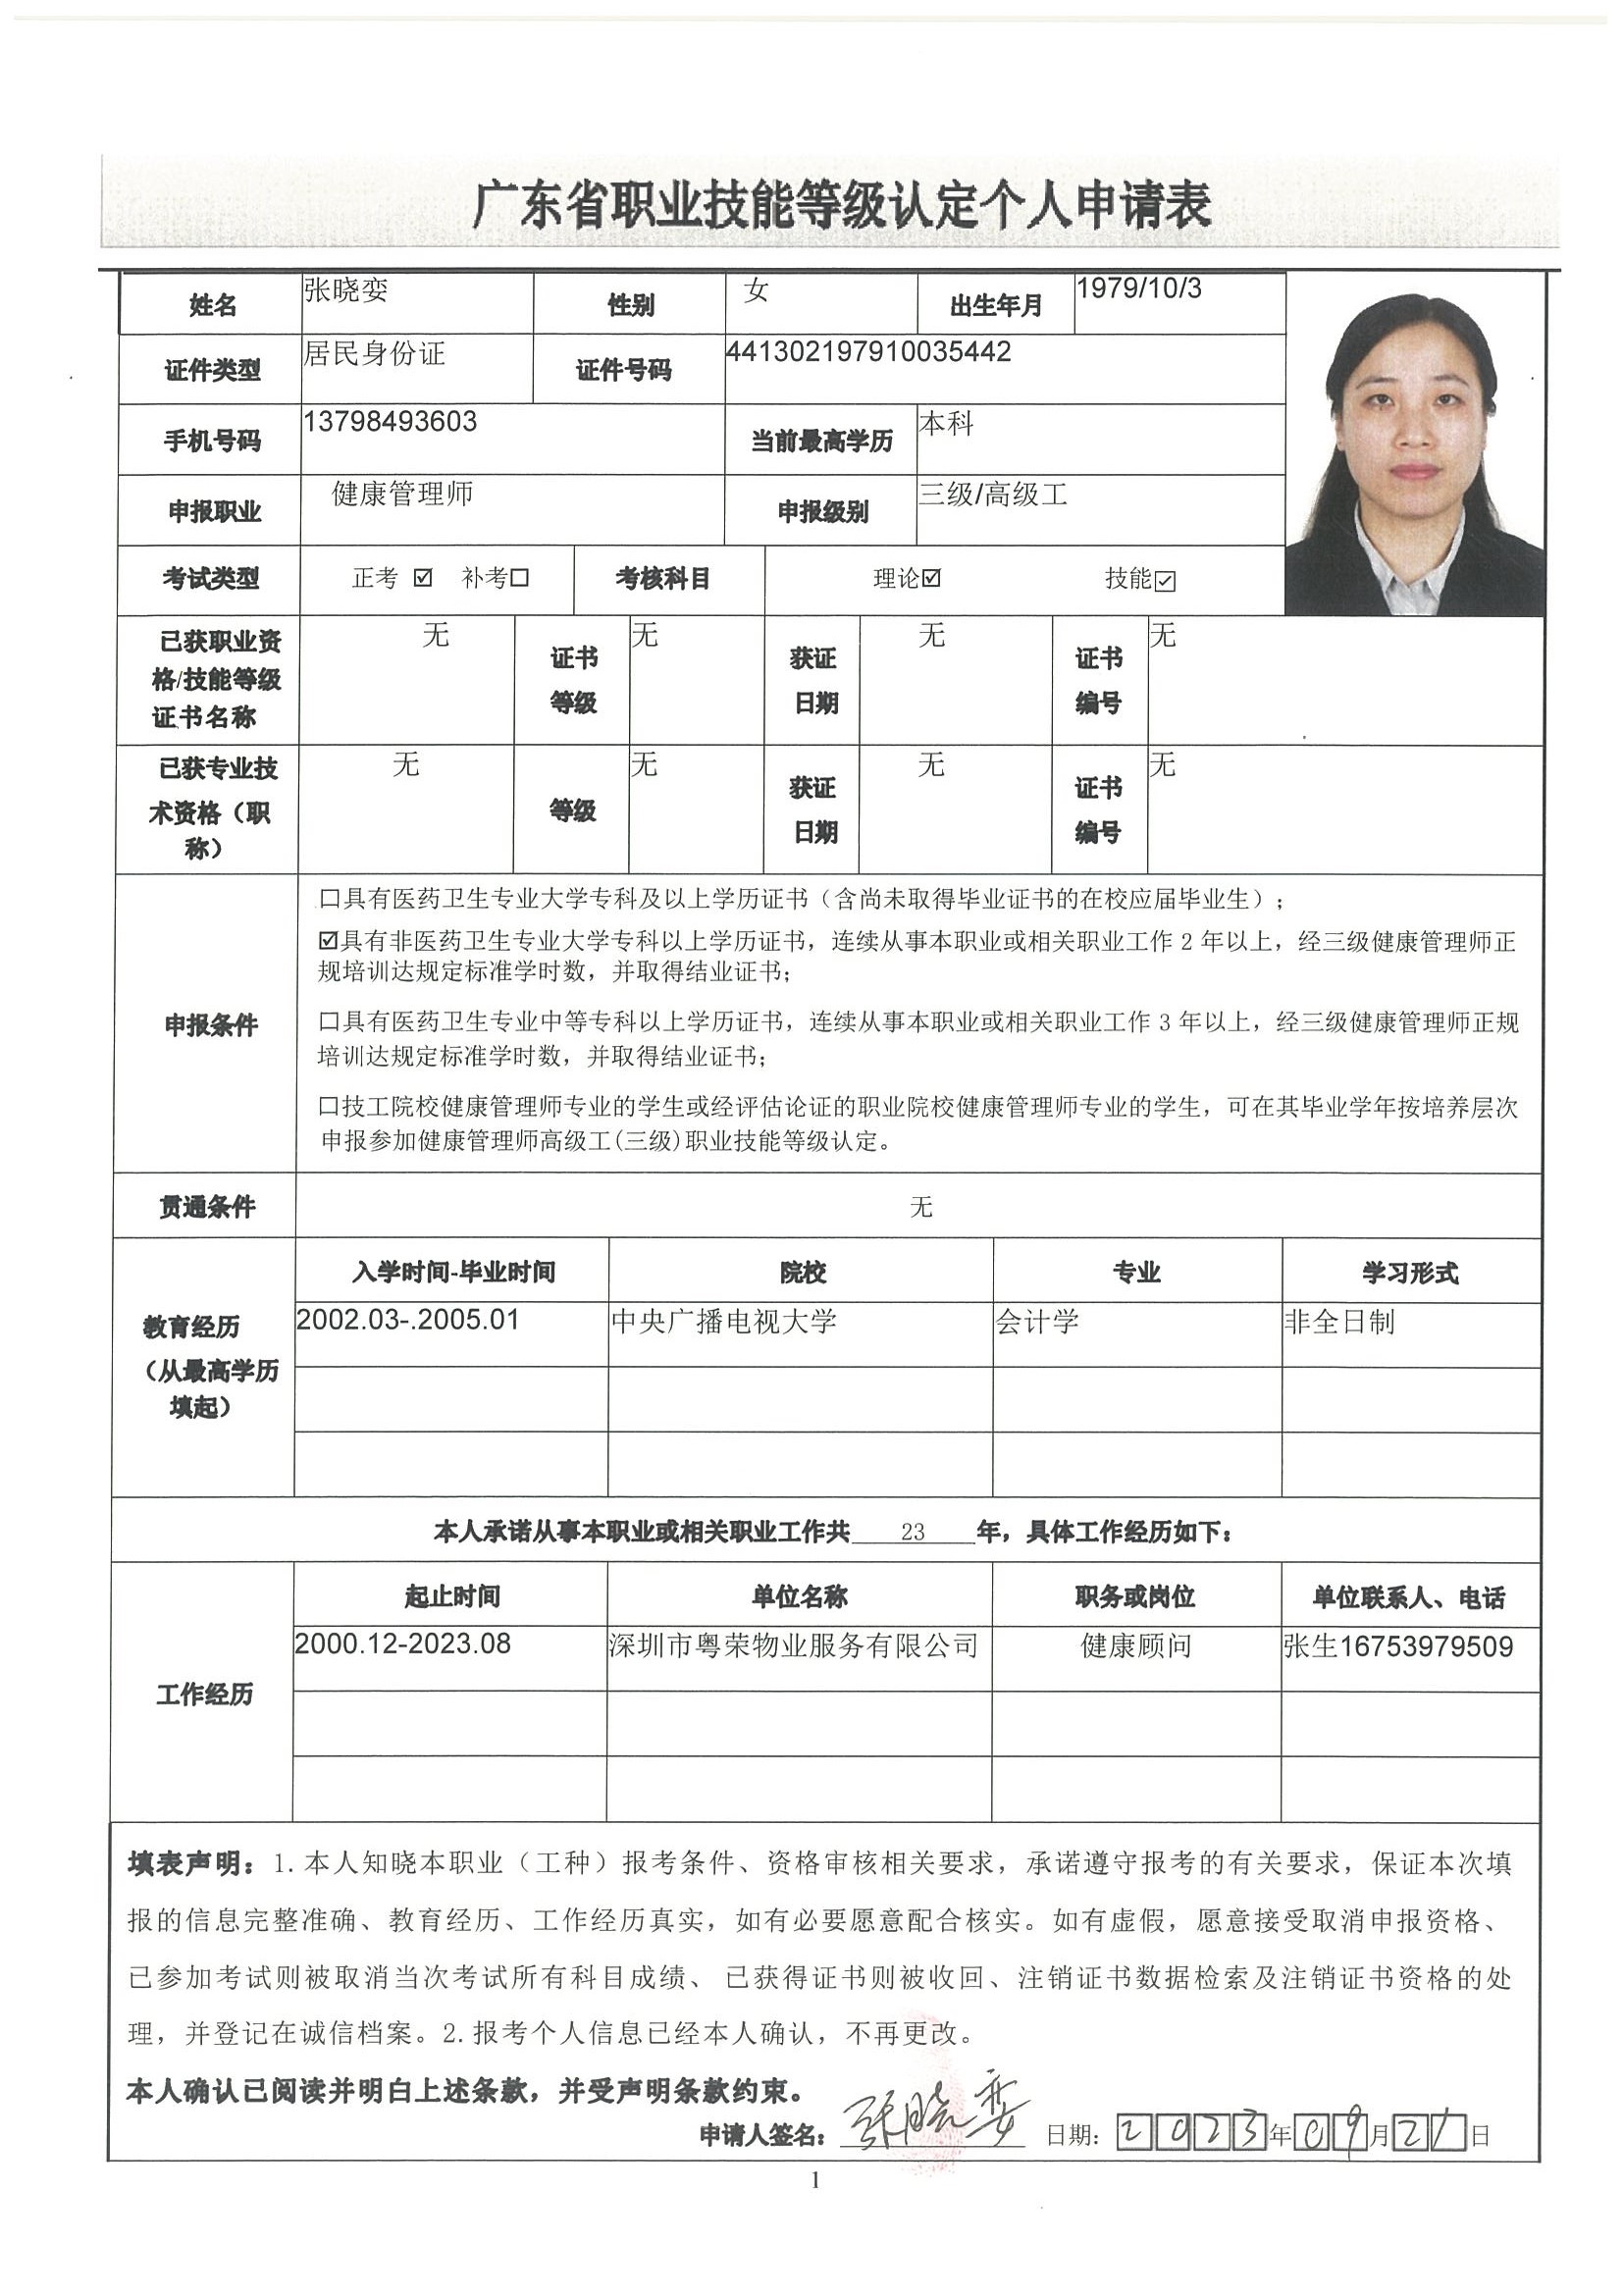 广东省职业技能等级认定个人申请表
姓名 张晓娈 性别 女 出生年月 1979/10/3
证件类型 居民身份证 证件号码 441302197910035442
手机号码 13798493603 当前最高学历 本科
申报职业 健康管理师 申报级别 三级/高级工
考试类型 正考 ☑ 补考☐ 考核科目 理论☑ 技能☑
已获职业资格/技能等级证书名称 无 证书等级 无 获证日期 无 证书编号 无
已获专业技术资格（职称） 无 等级 无 获证日期 无 证书编号 无
申报条件
☐具有医药卫生专业大学专科及以上学历证书（含尚未取得毕业证书的在校应届毕业生）；
☑具有非医药卫生专业大学专科以上学历证书，连续从事本职业或相关职业工作 2 年以上，经三级健康管理师正
规培训达规定标准学时数，并取得结业证书；
☐具有医药卫生专业中等专科以上学历证书，连续从事本职业或相关职业工作 3 年以上，经三级健康管理师正规
培训达规定标准学时数，并取得结业证书；
☐技工院校健康管理师专业的学生或经评估论证的职业院校健康管理师专业的学生，可在其毕业学年按培养层次
申报参加健康管理师高级工(三级)职业技能等级认定。
贯通条件 无
教育经历（从最高学历填起）
入学时间-毕业时间 院校 专业 学习形式
2002.03-.2005.01 中央广播电视大学 会计学 非全日制
本人承诺从事本职业或相关职业工作共 23 年，具体工作经历如下：
工作经历
起止时间 单位名称 职务或岗位 单位联系人、电话
2000.12-2023.08 深圳市粤荣物业服务有限公司 健康顾问 张生16753979509
填表声明：1.本人知晓本职业（工种）报考条件、资格审核相关要求，承诺遵守报考的有关要求，保证本次填
报的信息完整准确、教育经历、工作经历真实，如有必要愿意配合核实。如有虚假，愿意接受取消申报资格、
已参加考试则被取消当次考试所有科目成绩、 已获得证书则被收回、注销证书数据检索及注销证书资格的处
理，并登记在诚信档案。2.报考个人信息已经本人确认，不再更改。
本人确认已阅读并明白上述条款，并受声明条款约束。
申请人签名：张晓娈 日期：2023年09月21日
1